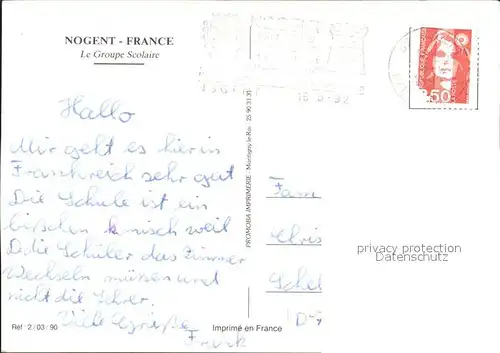 NOGENT - FRANCE
Le Groupe Scolaire
Hallo
Mir geht es hier in
Frankreich sehr gut
Die Schule ist ein
bißchen komisch weil
die Schüler das Zimmer
Wechseln müssen und
nicht die Lehrer.
Viele Grüße
Frank
Réf : 2 / 03 / 90
Imprimé en France
PROMOBA IMPRIMERIE - Montigny-le-Roi - 25 90 31 31
2.50
Fam
Chris
Schel
D-
privacy protection
Datenschutz